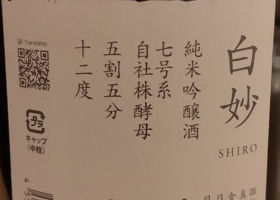 白妙
SHIRO
純米吟醸酒
七号系
自社株酵母
五割五分
十二度
QR Translator
キャップ
(中栓)